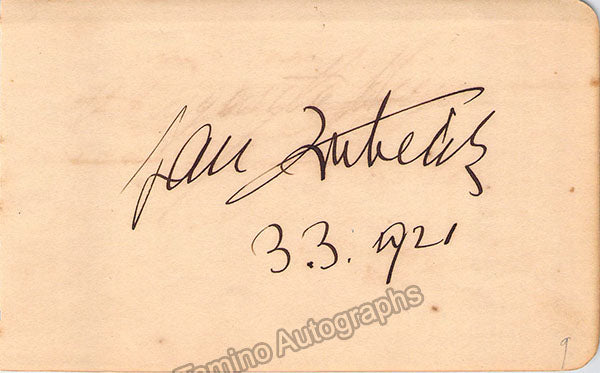 Jan Kubelík
3.3. 1921
Tamino Autographs
9